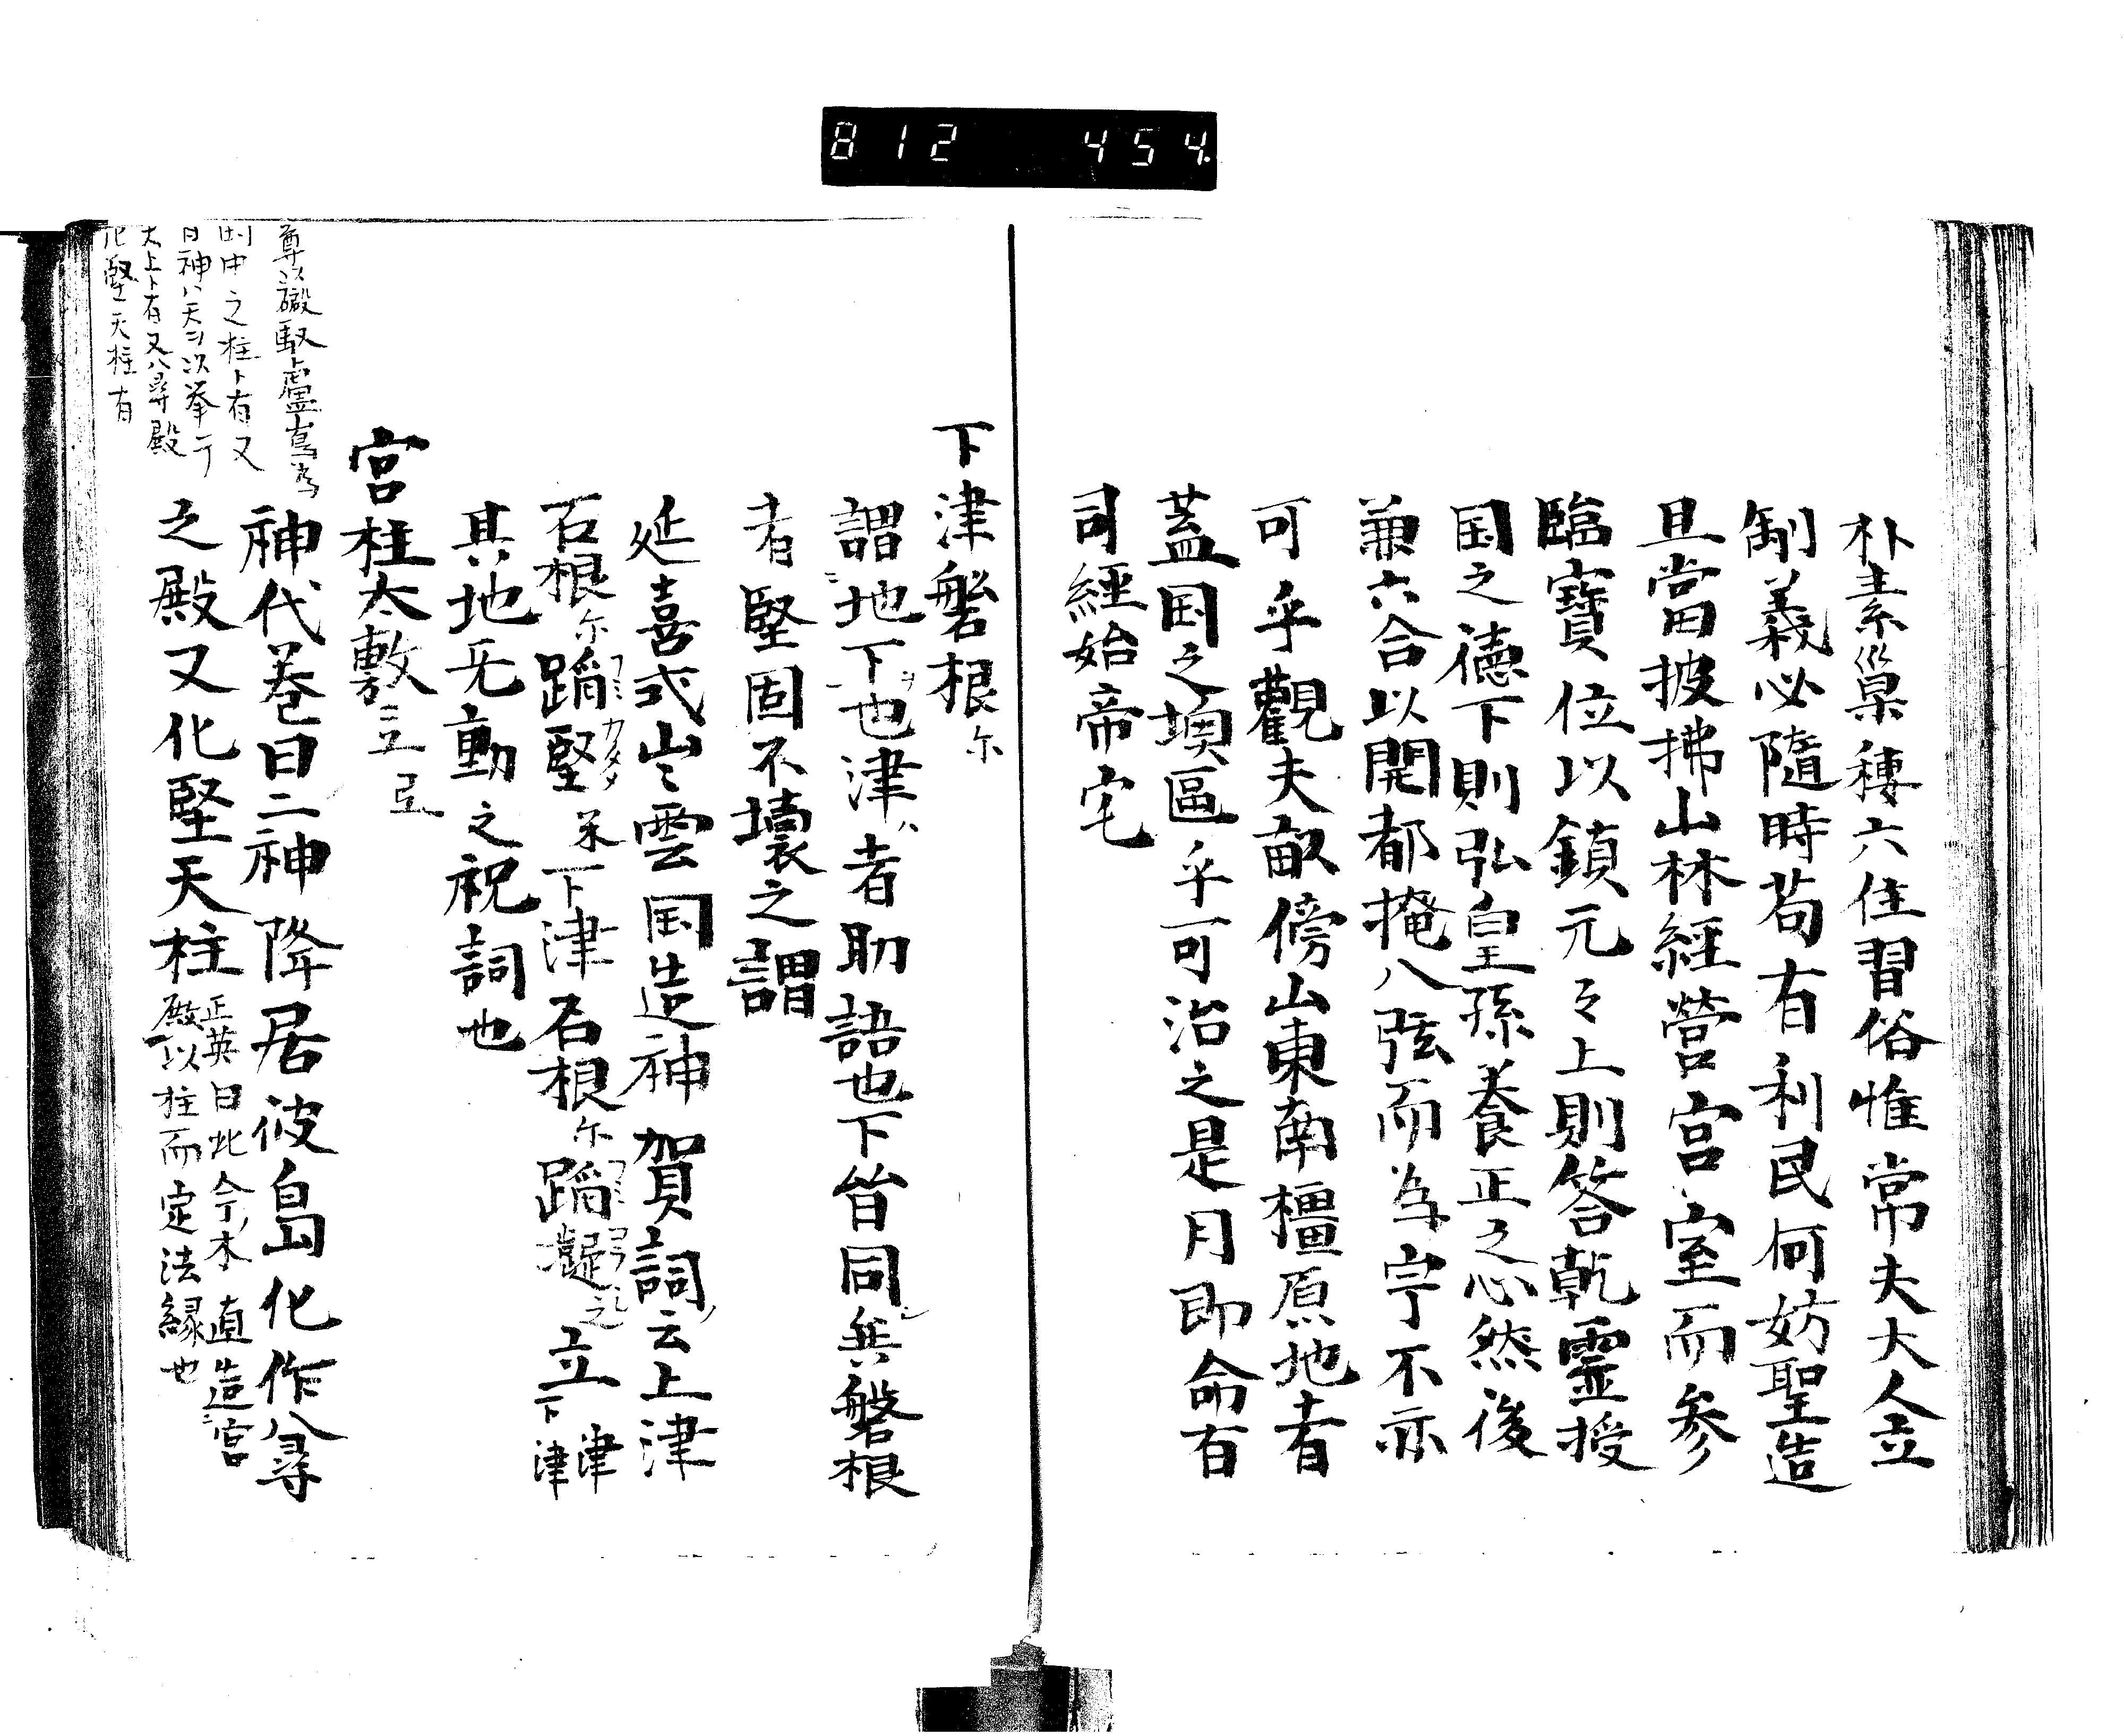 812 454.
朴素巣穂六住習俗惟常夫大人立
制義必隨時苟有利民何妨聖造
且當披拂山林經營宮室而参
臨寶位以鎮元々上則答乾霊授
国之徳下則弘皇孫養正之心然後
兼六合以開都掩八弦而為宇不亦
可乎觀夫畝傍山東南橿原地者
蓋国之墺區乎可治之是月即命有
司經始帝宅
下津磐根尓
謂地下也津者助語也下皆同矣磐根
者堅固不壊之謂
延喜式出雲国造神賀詞云上津
石根尓踏堅下津石根尓踏凝之立下津
其地无動之祝詞也
宮柱太敷立
神代巻曰二神降居彼島化作八尋
之殿又化堅天柱
正英曰此今木直造宮
殿以柱而定法縁也
尊以磤馭盧嶋為
国中之柱ト有又
日神八天ヲ次挙テ
天上ト有又八尋殿
化堅天柱有